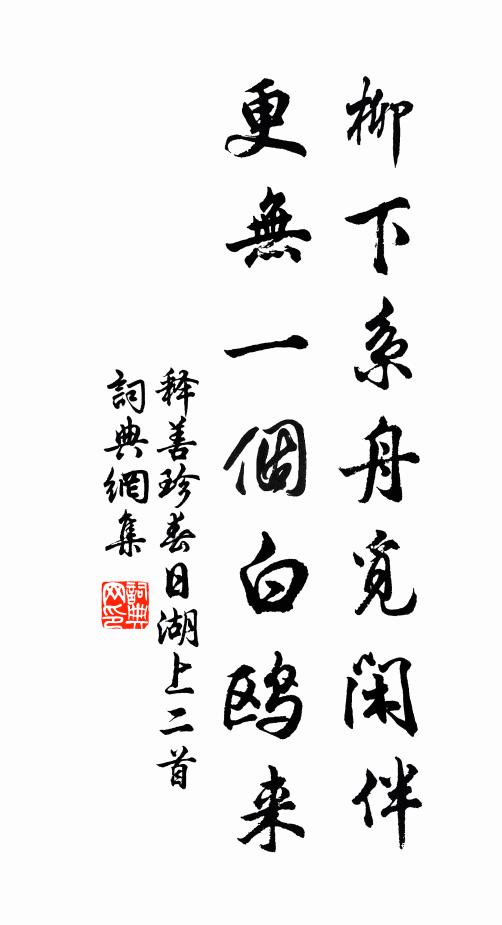 柳下系舟覓闲伴
更無一個白鸥来
释善珍春日湖上二首
詞典網集
詞典网印